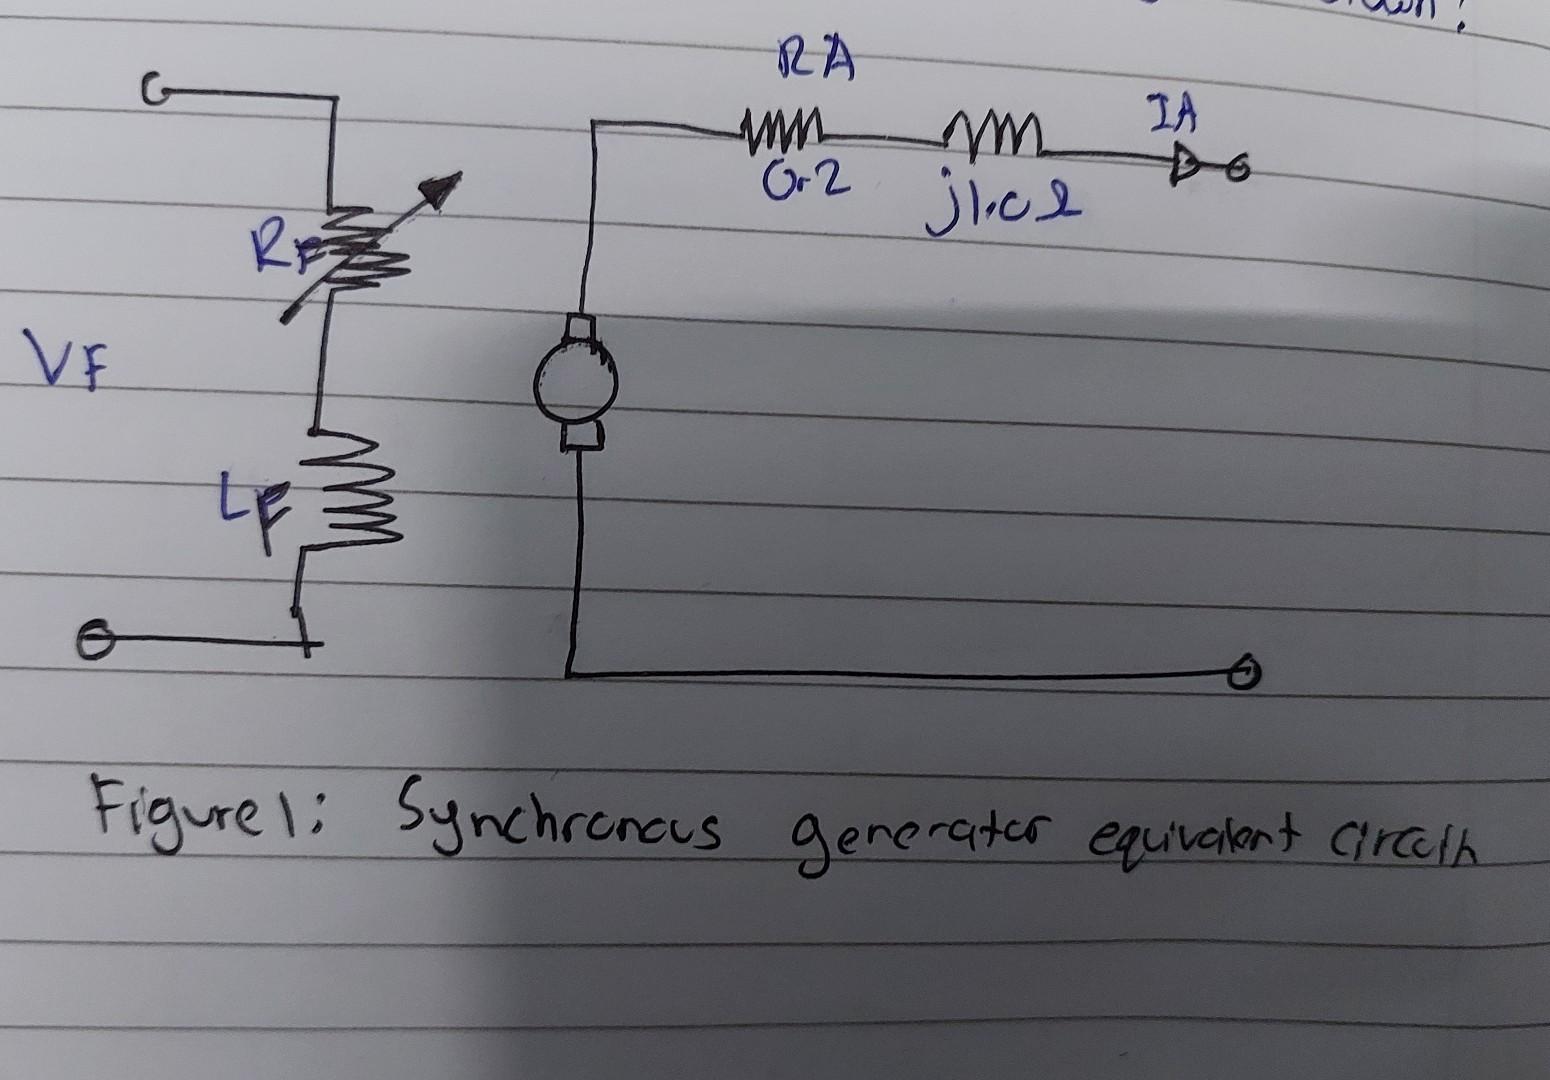 RA
IA
0.2
j1.0 Ω
RF
VF
LF
Figure 1: Synchronous generator equivalent